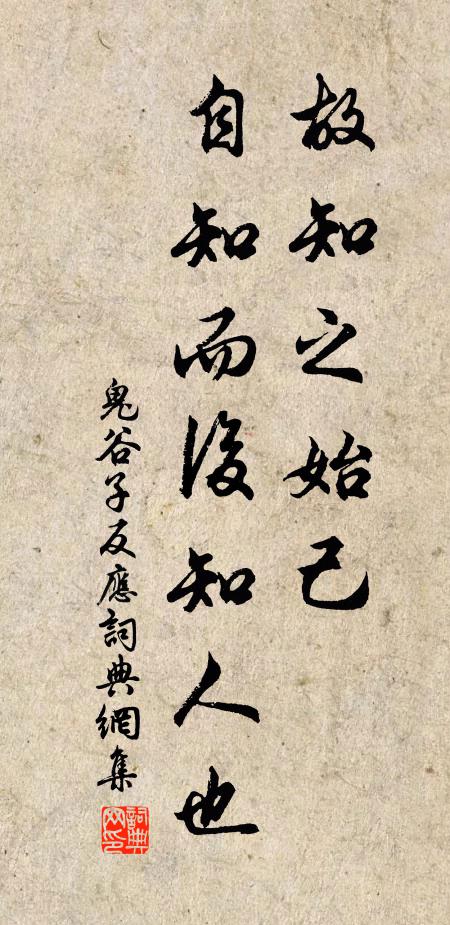 故知之始己
自知而後知人也
鬼谷子反應詞典網集
詞典网印